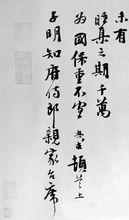 未有
瞻集之期千萬
為國保重不宣
頓首上
子明知府侍郎親家台席